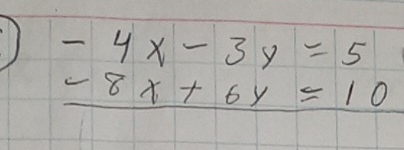 ) - 4x - 3y = 5
- 8x + 6y = 10